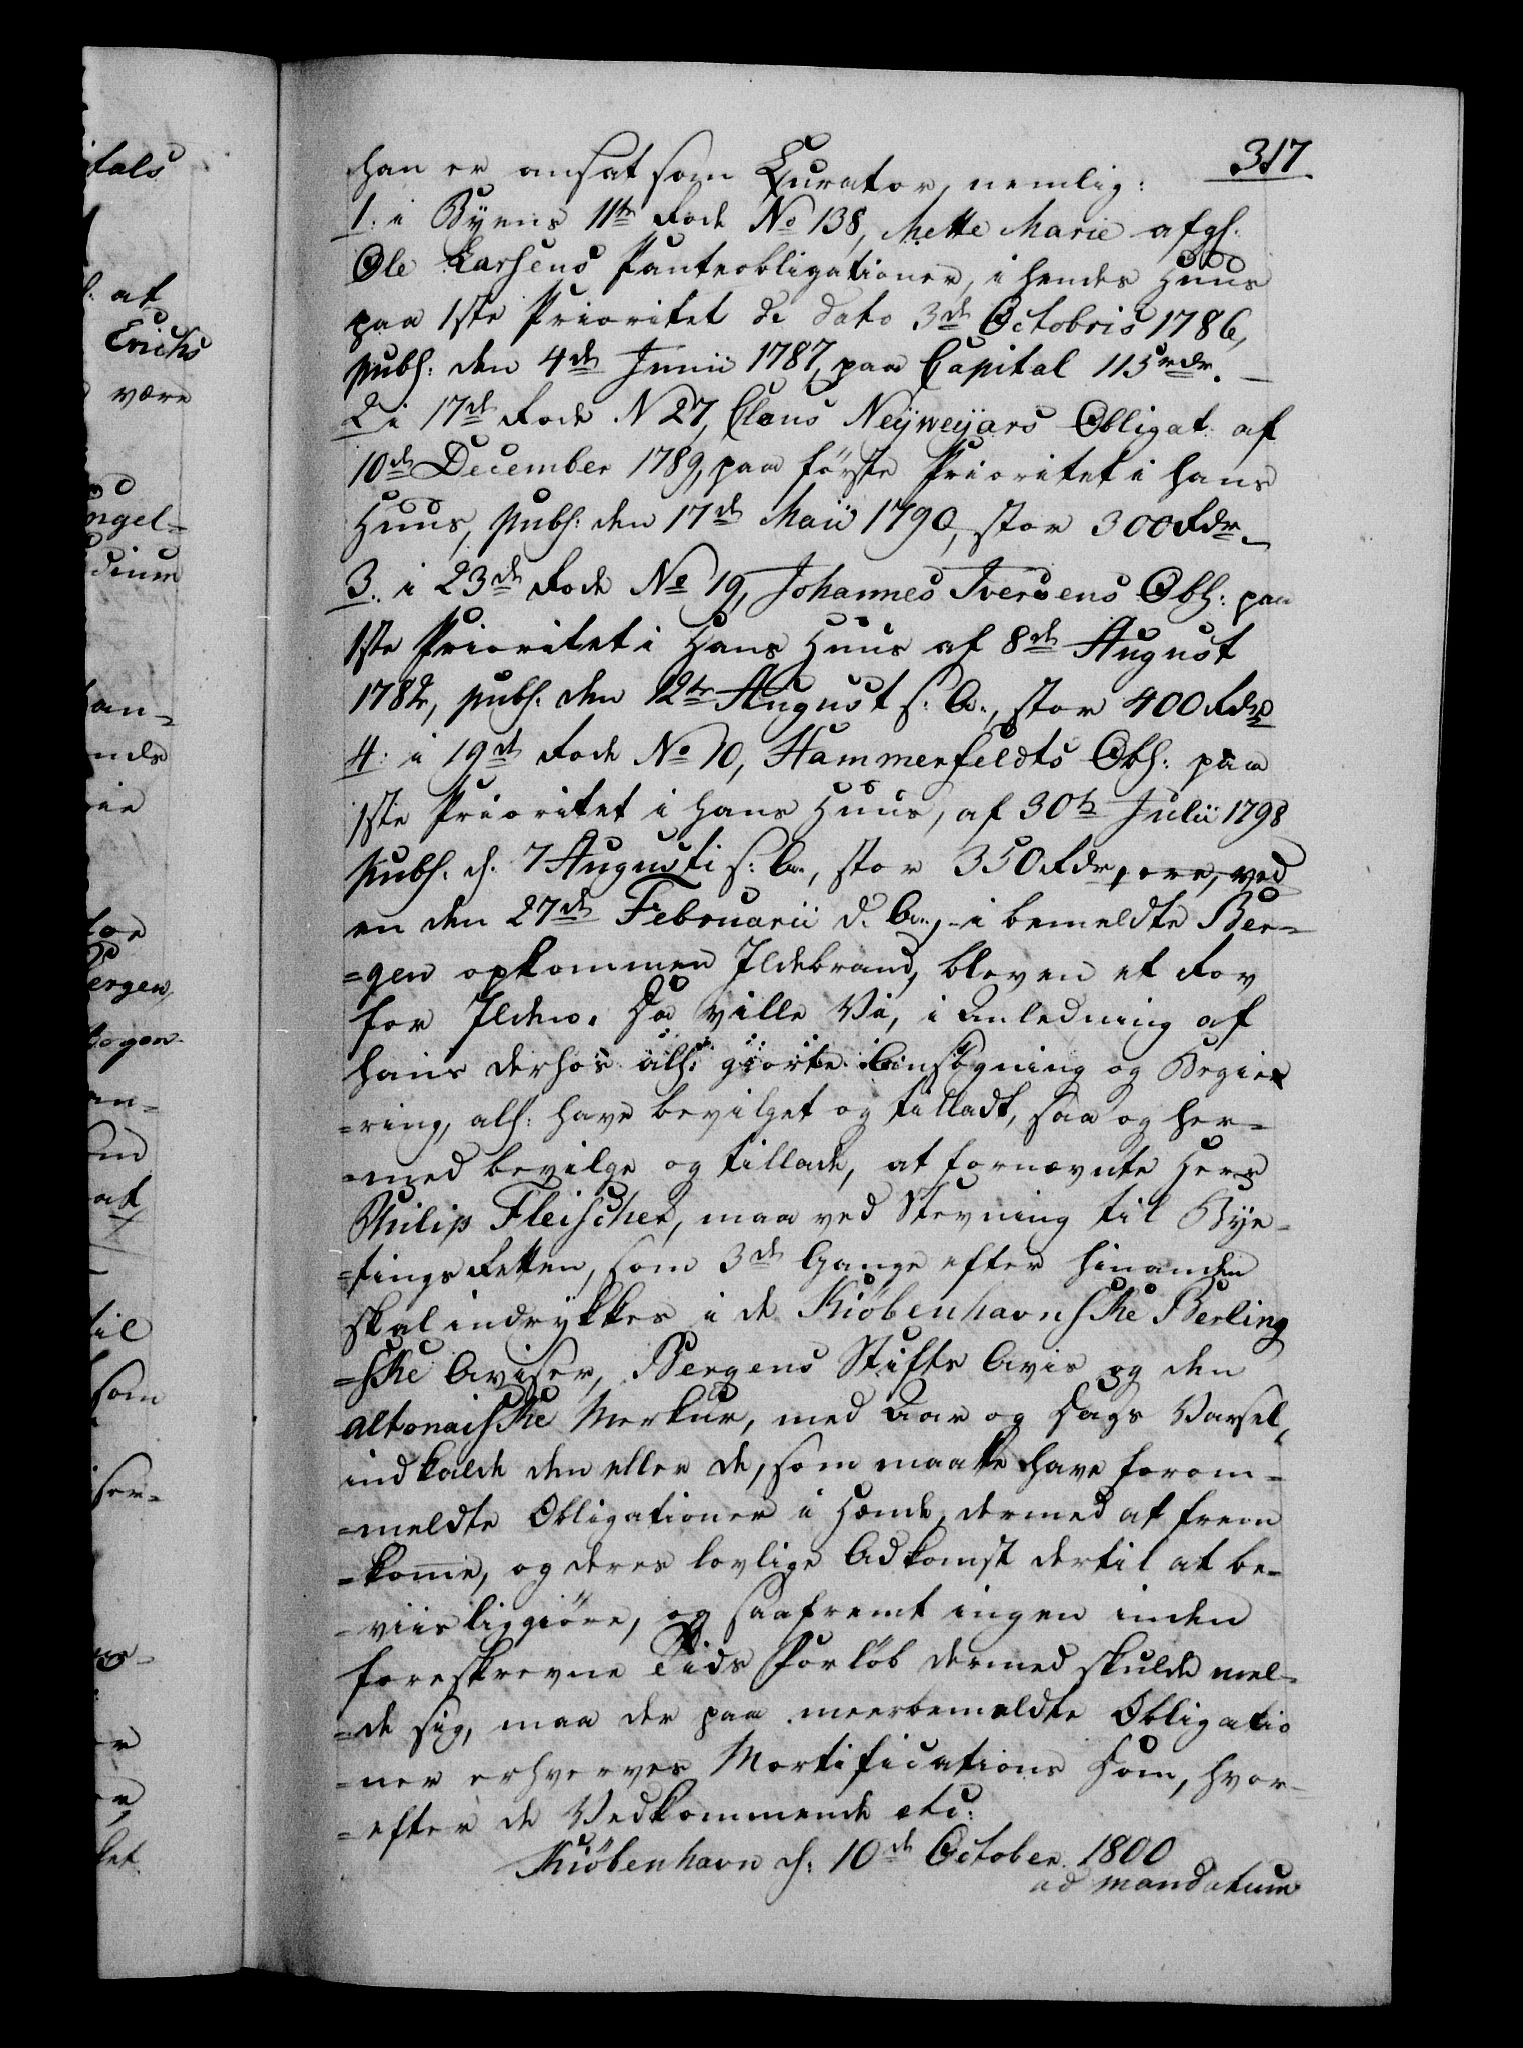 317
han er ansat som Curator, nemlig:
1: i Byens 11te Rode No 138, Mette Marie afgh:
Ole Larsens Panteobligationer, i hendes Huus
paa 1ste Prioritet de dato 3de Octobris 1786,
publ: den 4de Junii 1787, paa Capital 115 rdr. –
2 i 17de Rode N 27, Claus Neÿweÿars Obligat: af
10de December 1789, paa første Prioritet i hans
Huus, publ: den 17de Maii 1790, stor 300 Rdr –
3. i 23de Rode No 19, Johannes Iversens Obl: paa
1ste Prioritet i Hans Huus af 8de August
1782, publ. den 12te August s: A:, stor 400 Rdr
4: i 19de Rode No 10, Hammerfeldts Obl: paa
1ste Prioritet i hans Huus, af 30te Julii 1798
publ. d. 7 Augusti s: A., stor 350 Rdr, ere, ved
en den 27de Februarii d. A:, i bemeldte Ber=
=gen opkommen Ildebrand, bleven et Rov
for Ilden. Da ville Vi, i Anledning af
hans derhos alh: giorte Ansøgning og Begie
=ring, alh: have bevilget og tilladt, saa og her=
=med bevilge og tillade, at fornævnte Herr
Philip Fleischer, maa ved Stevning til Bye=
=tings Retten, som 3de Gange efter hinanden
skal indrykkes i de Kiøbenhavnske Berling
=ske Aviser, Bergens Stifts Avis og den
altonaiske Merkur, med Aar og Dags Varsel,
indkalde den eller de, som maatte have forom=
=meldte Obligationer i Hænde, dermed at frem
=kome, og deres lovlige Adkomst dertil at be=
=viisliggiøre, og saafremt ingen inden
foreskrevne Tids Forløb dermed skulde mel=
=de sig, maa der paa meerbemeldte Obligatio
=ner erhverves Mortifications Dom, hvor=
=efter de Vedkommende etc:
Kiøbenhavn d: 10de October 1800
ad mandatum
tals
at
Erichs
være
ngel=
dium
an=
ende
ergen,
an=
at
til
som
ser=